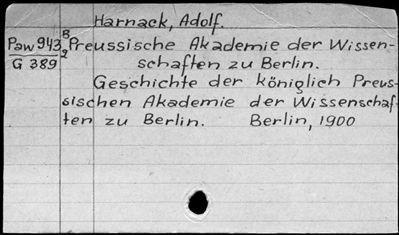 Harnack, Adolf.
Paw 943 B Preussische Akademie der Wissen-
G 389 2 schaften zu Berlin.
Geschichte der königlich Preus-
sischen Akademie der Wissenschaf-
ten zu Berlin. Berlin, 1900